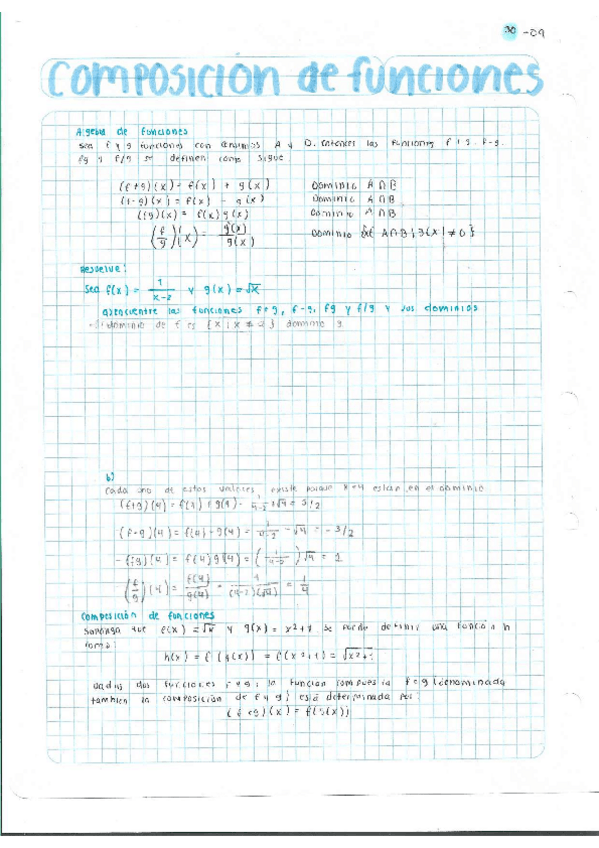 30 -09
COMPOSICIÓN de funciones
Algebra de funciones
sea f y g funciones con dominios A y D. Entonces las funciones f + g, f-g,
fg y f/g se definen como sigue
(f+g)(x)= f(x) + g(x) Dominio A∩B
(f-g)(x) = f(x) - g(x) Dominio A∩B
(fg)(x) = f(x)g(x) Dominio A∩B
(f/g)(x)= g(x)/g(x) Dominio {x∈ A∩B | g(x) ≠ 0}
Resuelve:
Sea f(x) = 1/x-2 y g(x) = √x
a) encuentre las funciones f+g, f-g, fg y f/g y sus dominios
-El dominio de f es {x | x ≠ 2} dominio g
b)
Cada uno de estos valores, existe porque x=4 estan en el dominio
(f+g)(4) = f(4)+g(4)= 1/4-2 +√4 = 5/2
(f-g)(4) = f(4)-g(4) = 1/4-2 -√4 = -3/2
-(fg)(4) = f(4)g(4) = (1/4-2)√4 = 1
(f/g)(4) = f(4)/g(4) = 1/(4-2)(√4) = 1/4
Composición de funciones
Suponga que f(x) = √x y g(x) = x²+1 se puede definir una función h
como:
h(x) = f(g(x)) = f(x²+1) = √x²+1
Dadas dos funciones f y g, la funcion compuesta f∘g (denominada
tambien la composición de f y g) está determinada por:
(f∘g)(x) = f(g(x))